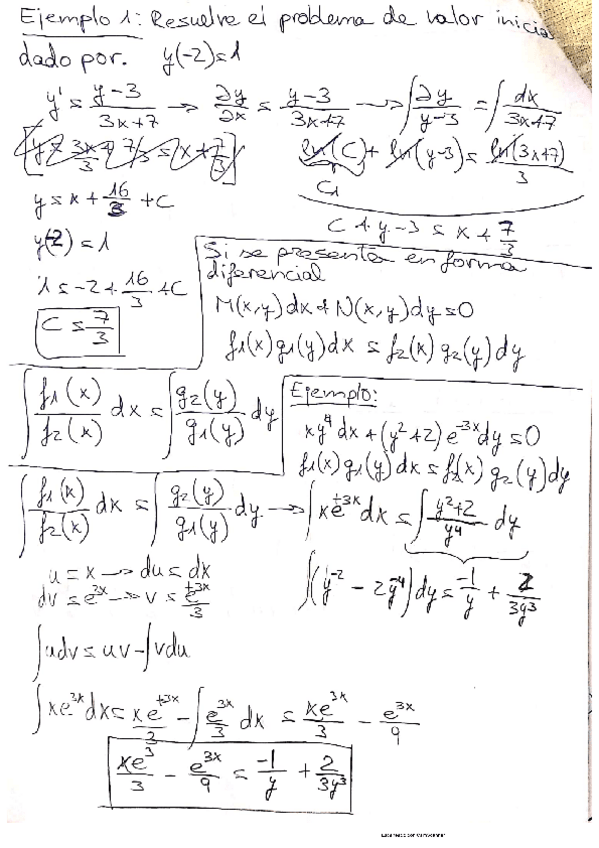 Ejemplo 1: Resuelve el problema de valor inicial
dado por. y(-2)=1
y' = (y-3)/(3x+7) → ∂y/∂x = (y-3)/(3x+7) → ∫ ∂y/(y-3) = ∫ dx/(3x+7)
ln(C) + ln(y-3) = ln(3x+7)/3
C1
y = x + 16/3 + C
C + y - 3 = x + 7/3
y(-2) = 1
1 = -2 + 16/3 + C
C = 7/3
Si se presenta en forma
diferencial
M(x,y)dx + N(x,y)dy = 0
f1(x)g1(y)dx = f2(x)g2(y)dy
∫ f1(x)/f2(x) dx = ∫ g2(y)/g1(y) dy
Ejemplo:
xy⁴dx + (y²+2)e^-3x dy = 0
f1(x)g1(y)dx = f2(x)g2(y)dy
∫ f1(x)/f2(x) dx = ∫ g2(y)/g1(y) dy → ∫ xe^+3x dx = ∫ (y²+2)/y⁴ dy
u = x → du = dx
dv = e^3x → v = e^+3x/3
∫(y^-2 - 2y^-4)dy = -1/y + 2/3y³
∫udv = uv - ∫vdu
∫xe^3x dx = xe^+3x/3 - ∫ e^3x/3 dx = xe^3x/3 - e^3x/9
xe^3/3 - e^3x/9 = -1/y + 2/3y³